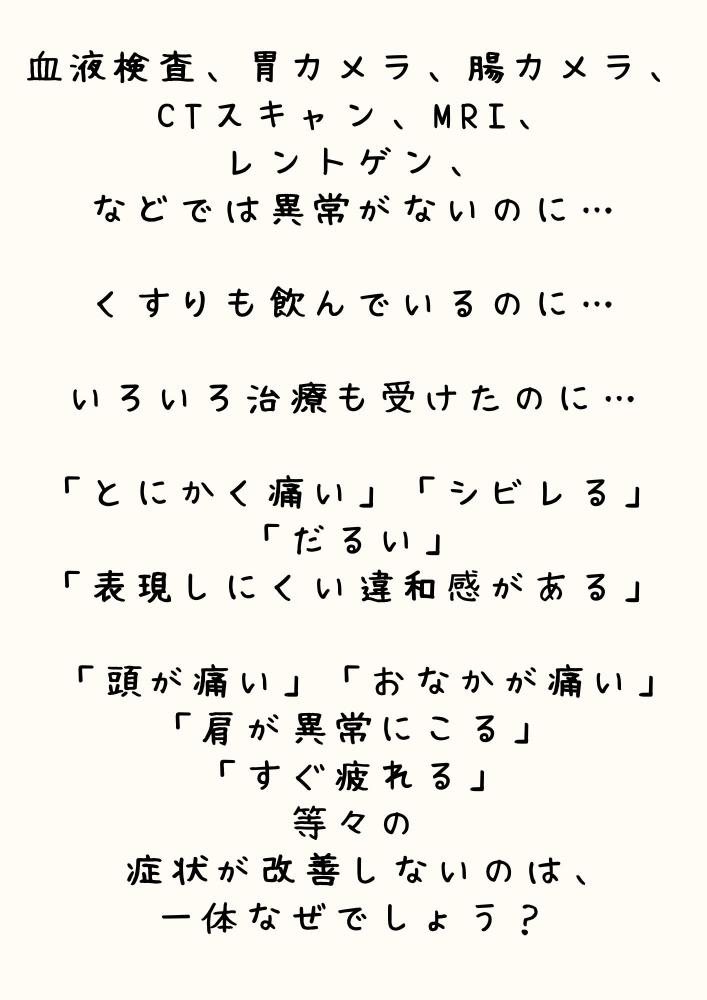 血液検査、胃カメラ、腸カメラ、
CTスキャン、MRI、
レントゲン、
などでは異常がないのに…
くすりも飲んでいるのに…
いろいろ治療も受けたのに…
「とにかく痛い」「シビレる」
「だるい」
「表現しにくい違和感がある」
「頭が痛い」「おなかが痛い」
「肩が異常にこる」
「すぐ疲れる」
等々の
症状が改善しないのは、
一体なぜでしょう？